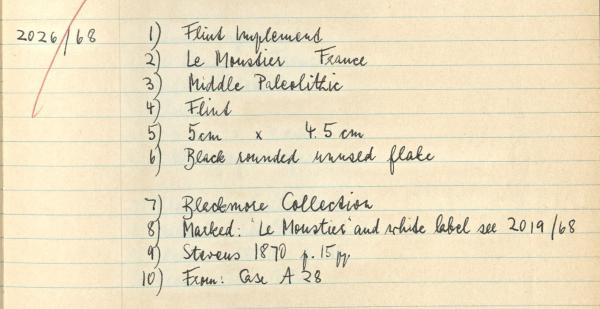 2026/68 1) Flint Implement
2) Le Moustier France
3) Middle Paleolithic
4) Flint
5) 5cm x 4.5cm
6) Black rounded unused flake
7) Blackmore Collection
8) Marked: 'Le Moustier' and white label see 2019/68
9) Stevens 1870 p.15pp
10) From: Case A 28